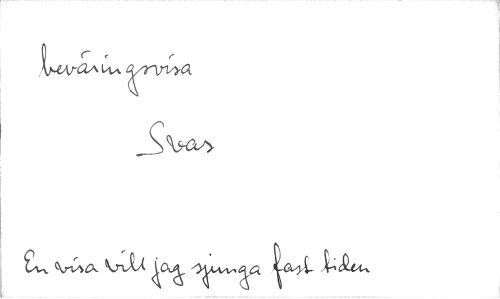 beväringsvisa
Svas
En visa vill jag sjunga fast tiden